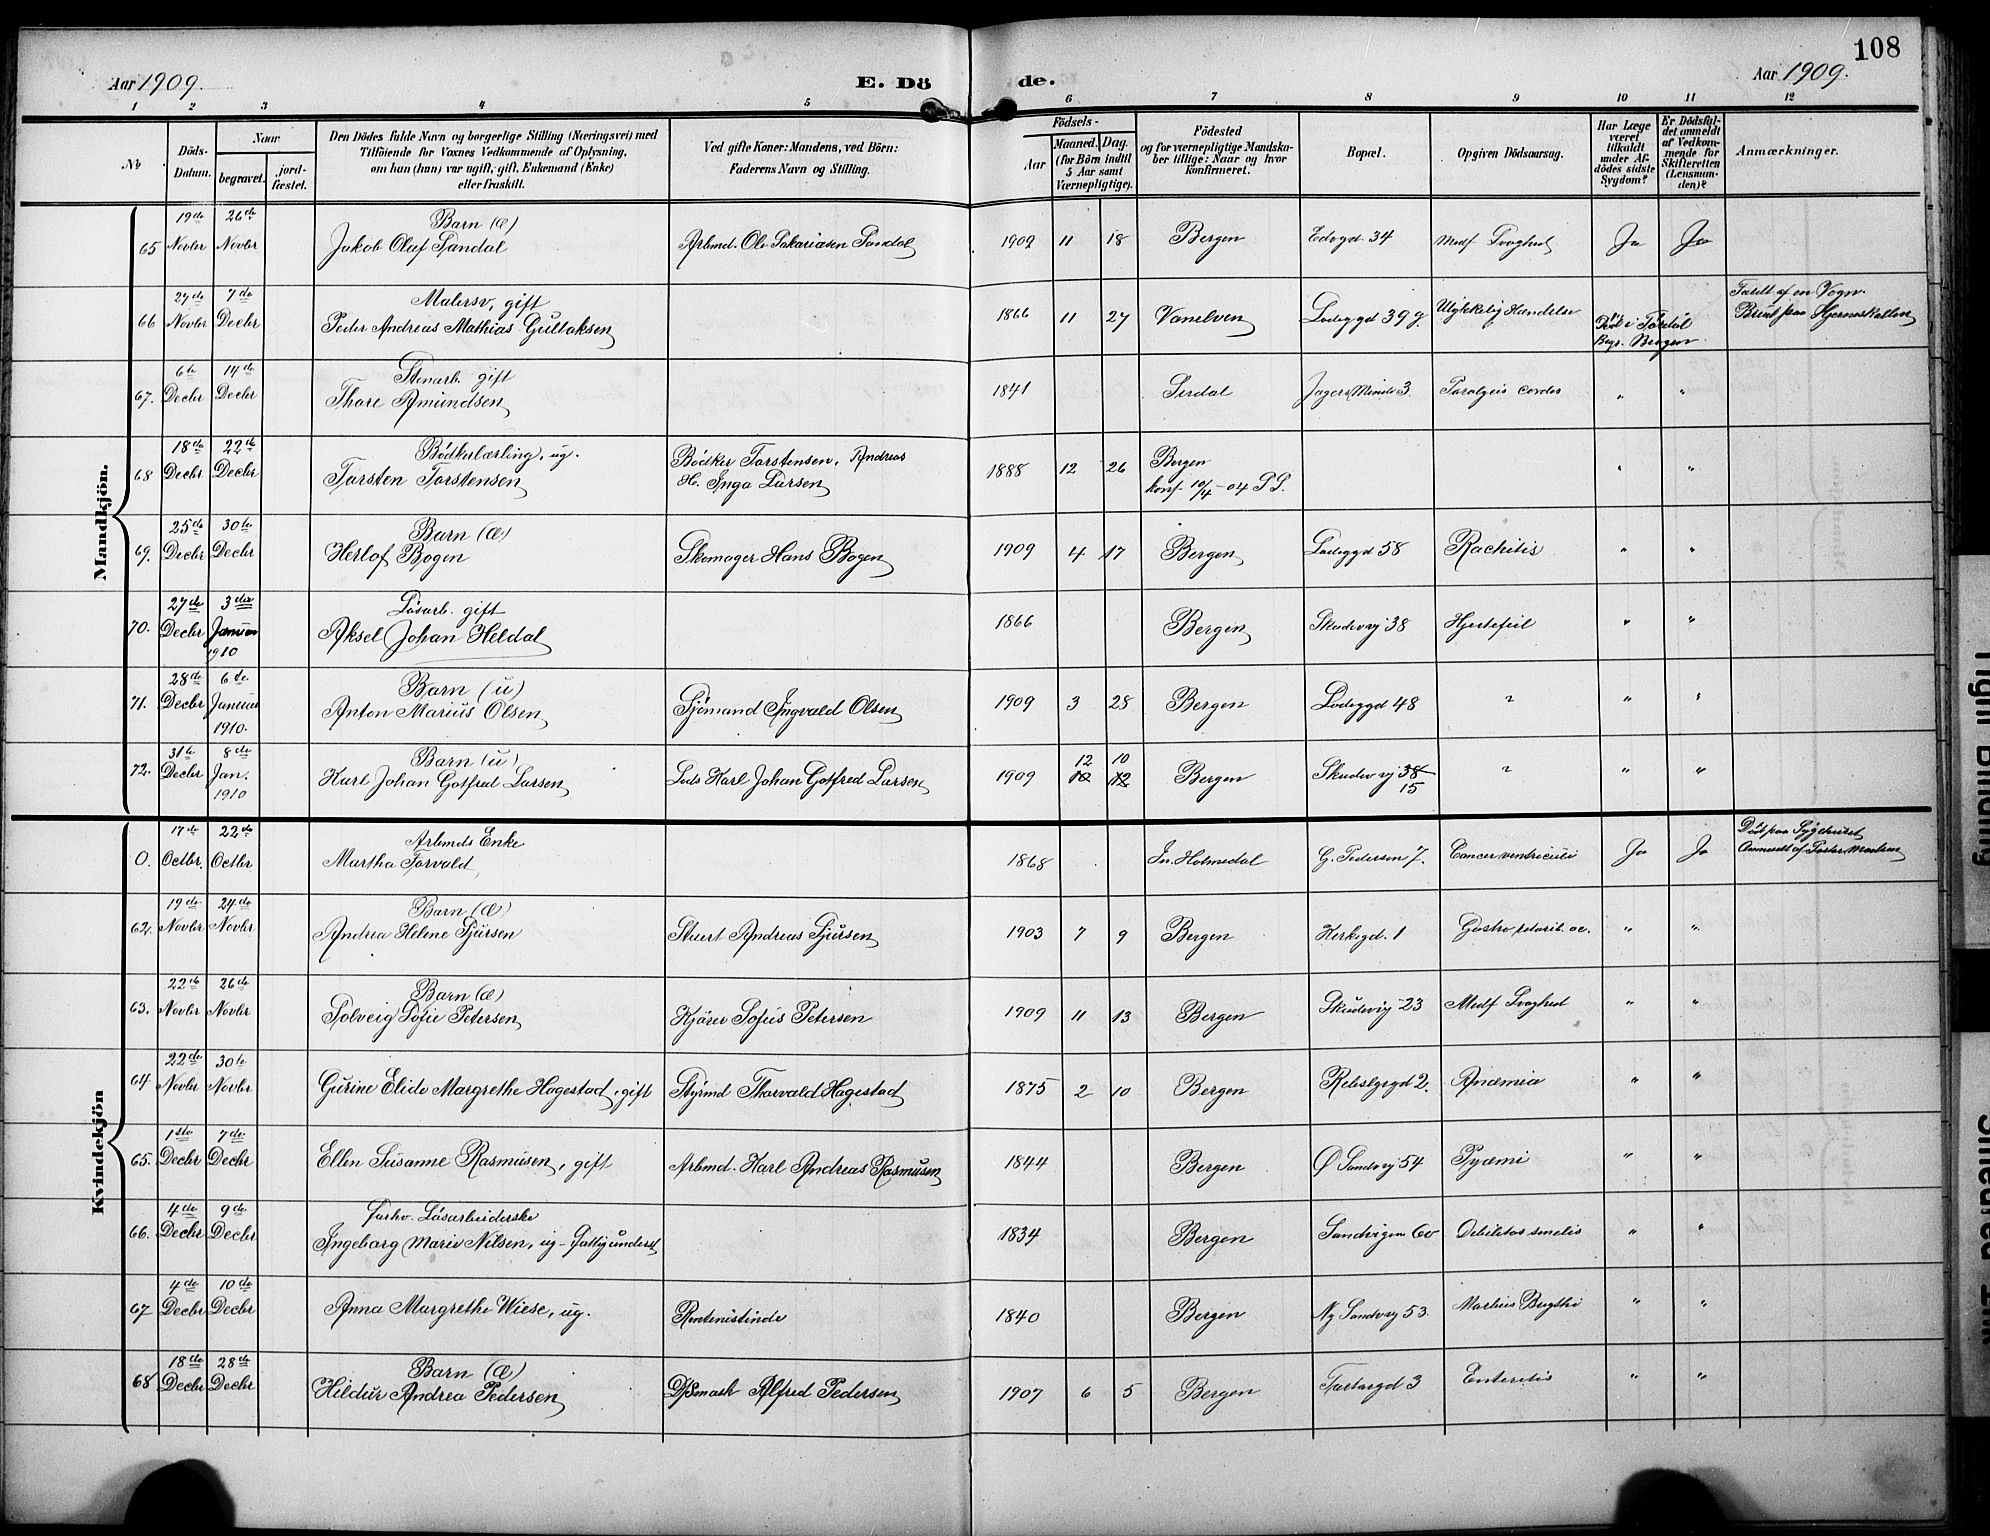 108
Aar 1909.
E. Döde.
Aar 1909.
1 2 3 4 5 6 7 8 9 10 11 12
No
Döds-Datum.
Naar
begravet.
jord-fæstet.
Den Dödes fulde Navn og borgerlige Stilling (Næringsvei) med
Tilföiende for Voxnes Vedkommende af Oplysning,
om han (hun) var ugift, gift, Enkemand (Enke)
eller fraskilt.
Ved gifte Koner: Mandens, ved Börn:
Faderens Navn og Stilling.
Födsels-
Aar
Maaned. Dag.
(for Börn indtil
5 Aar samt
Værnepligtige).
Födested
og for værnepligtige Mandska-
ber tillige: Naar og hvor
konfirmeret.
Bopæl.
Opgiven Dödsaarsag.
Har Læge
været
tilkaldt
under Af-
dödes sidste
Sygdom?
Er Dödsfal-
det anmeldt
af Vedkom-
mende for
Skifteretten
(Lensman-
den)?
Anmærkninger.
Mandkjön.
65 19de Novbr 26de Novbr Barn (æ)
Jakob Oluf Sandal Arbmd. Ole Sakariasen Sandal 1909 11 18 Bergen 34 Medf Svaghed Ja Ja
66 27de Novbr 7de Decbr Malersv, gift
Peder Andreas Mathias Gullaksen 1866 11 27 Vanelven Ladeggd 39 g Ulykkelig Hændelse
Bergen
67. 6te Decbr 14de Decbr Stenarb. gift
Thore Amundsen 1841 Sirdal Minde 3 cordis " "
68 18de Decbr 22de Decbr Bödkerlærling, ug.
Torsten Torstensen Bödker Torstensen, Andreas
H. Inga Larsen 1888 12 26 Bergen
konf. 10/4 - 04 " "
69. 25de Decbr 30te Decbr Barn (æ)
Herlof Bogen Skomager Hans Bogen 1909 4 17 Bergen Ladeggd 58 Rachitis " "
70. 27de Decbr 3die Januar 1910 Løsarb. gift
Aksel Johan Heldal 1866 Bergen Skudevig 38 Hjertefeil " "
71. 28de Decbr 6te Januar 1910. Barn (u)
Anton Marius Olsen Sjömand Ingvald Olsen 1909 3 28 Bergen Ladeggd 48 ? " "
72. 31te Decbr 8de Jan. 1910 Barn (u)
Karl Johan Gotfred Larsen Lods Karl Johan Gotfred Larsen 1909 12 10 Bergen Skudevig 38
15 ? " "
Kvindekjön
0. 17de Octbr. 22de Octbr Arbmds Enke
Martha Torvald 1868 In. Holmedal G. Pedersen 7. Cancer ventriculi Ja Ja Död paa Sygehuset
62. 19de Novbr 24de Novbr Barn (æ)
Andrea Helene Sjursen Stuert Andreas Sjursen 1903 7 9 Bergen Kirkegd. 1 Gastro " "
63. 22de Novbr 26de Novbr Barn (æ)
Solveig Sofie Petersen Kjörer Sofus Petersen 1909 11 13 Bergen Skudevig 23 Medf Svaghed " "
64 22de Novbr 30te Novbr Gurine Elide Margrethe Hagestad, gift Styrmd Thorvald Hagestad 1875 2 10 Bergen 2. Anæmia " "
65. 1ste Decbr 7de Decbr Ellen Susanne Rasmusen, gift Arbmd. Karl Andreas Rasmusen 1844 Bergen Ø Sandvig 54 Pyæmi " "
66. 4de Decbr 9de Decbr forhv. Løsarbeiderske
Ingeborg Marie Nilsen, ug - Fattigunderst 1834 Bergen Sandvigen Debilitas senilis " "
67 4de Decbr 10de Decbr Anna Margrethe Wiese, ug. Rentenistinde 1840 Bergen Ny Sandvig 53. Morbus " "
68 18de Decbr 28de Decbr Barn (æ)
Hildur Andrea Pedersen Alfred Pedersen 1907 6 5 Bergen 3 Enteritis " "